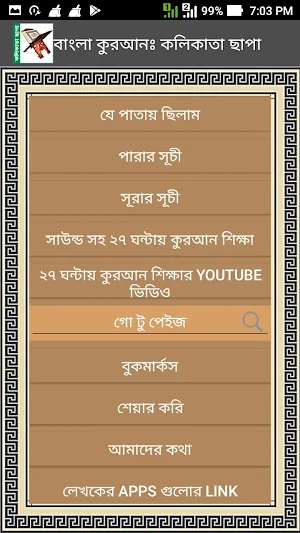 99% 7:03 PM
কলিকাতা ছাপা
বাংলা কুরআনঃ কলিকাতা ছাপা
যে পাতায় ছিলাম
পারার সূচী
সূরার সূচী
সাউন্ড সহ ২৭ ঘন্টায় কুরআন শিক্ষা
২৭ ঘন্টায় কুরআন শিক্ষার YOUTUBE
ভিডিও
গো টু পেইজ
বুকমার্কস
শেয়ার করি
আমাদের কথা
লেখকের APPS গুলোর LINK